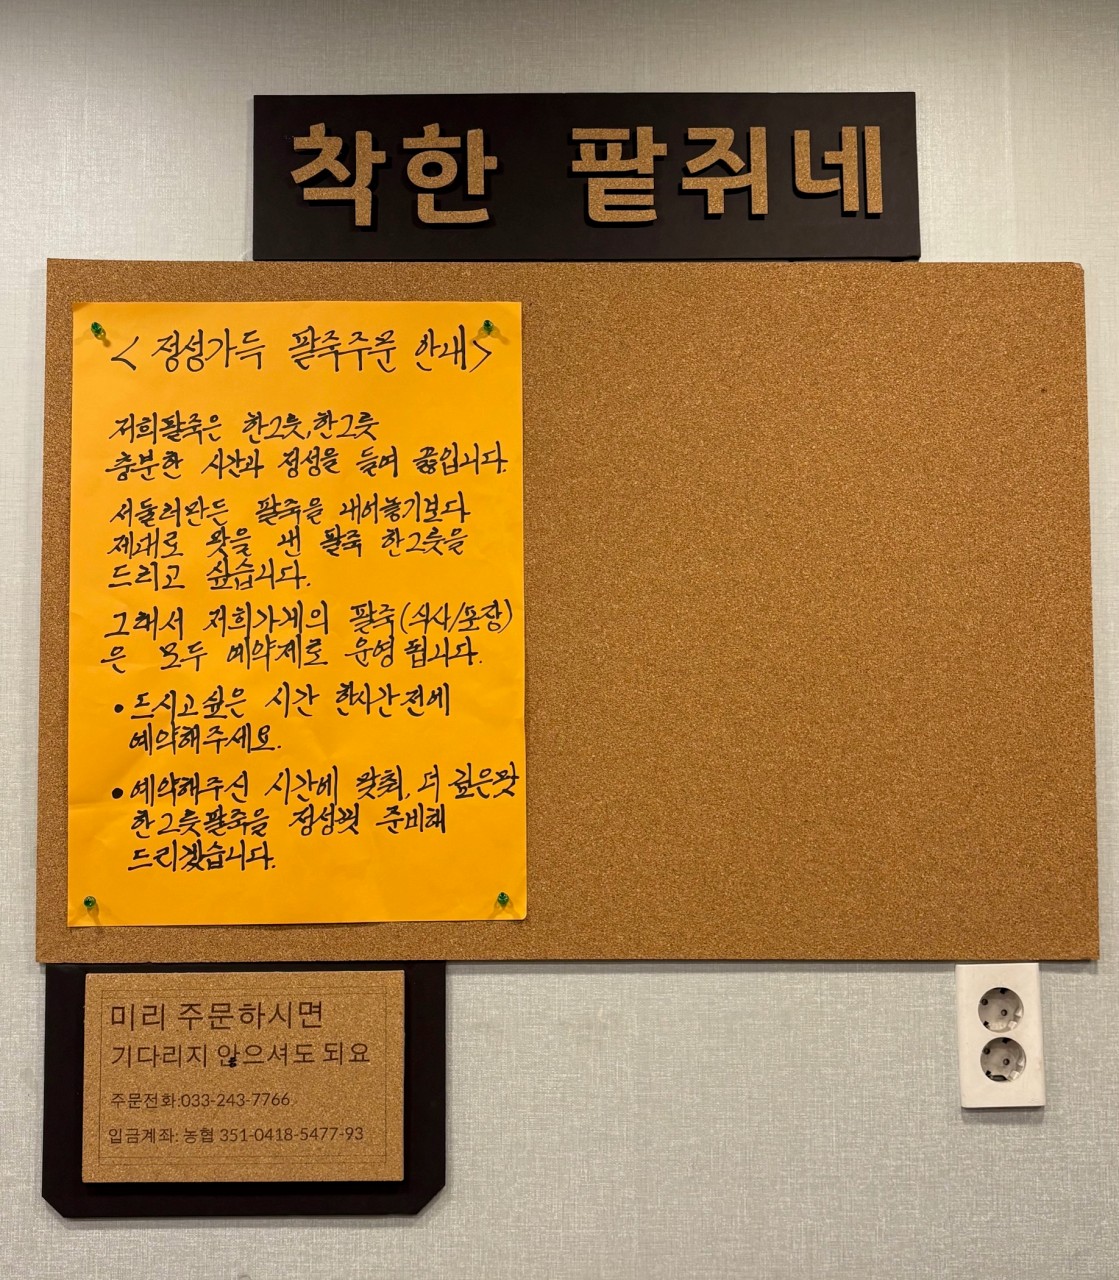 착한 팥쥐네
<정성가득 팥죽주문 안내>
저희팥죽은 한그릇,한그릇
충분한 시간과 정성을 들여 끓입니다.
서둘러만든 팥죽을 내어놓기보다
제대로 맛을 낸 팥죽 한그릇을
드리고 싶습니다.
그래서 저희가게의 팥죽(식사/포장)
은 모두 예약제로 운영 됩니다.
• 드시고싶은 시간 한시간전에
예약해주세요.
• 예약해주신 시간에 맞춰, 더 깊은맛
한그릇팥죽을 정성껏 준비해
드리겠습니다.
미리 주문하시면
기다리지 않으셔도 되요
주문전화:033-243-7766
입금계좌: 농협 351-0418-5477-93